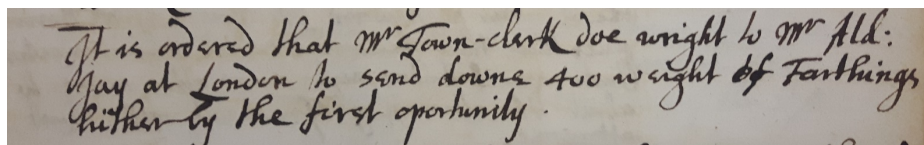 It is ordered that Mr Town-clerk doe wright to Mr Ald:
Jay at London to send downe 400 weight of Farthings
hither by the first oportunity.